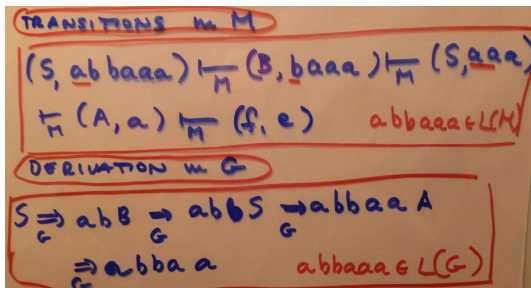 TRANSITIONS in M
(S, abbaaa) ⊢M (B, baaa) ⊢M (S, aaa)
⊢M (A, a) ⊢M (f, e) abbaaa ∈ L(M)
DERIVATION in G
S ⇒G abB ⇒G abbS ⇒G abbaaA
⇒G abbaa a abbaaa ∈ L(G)